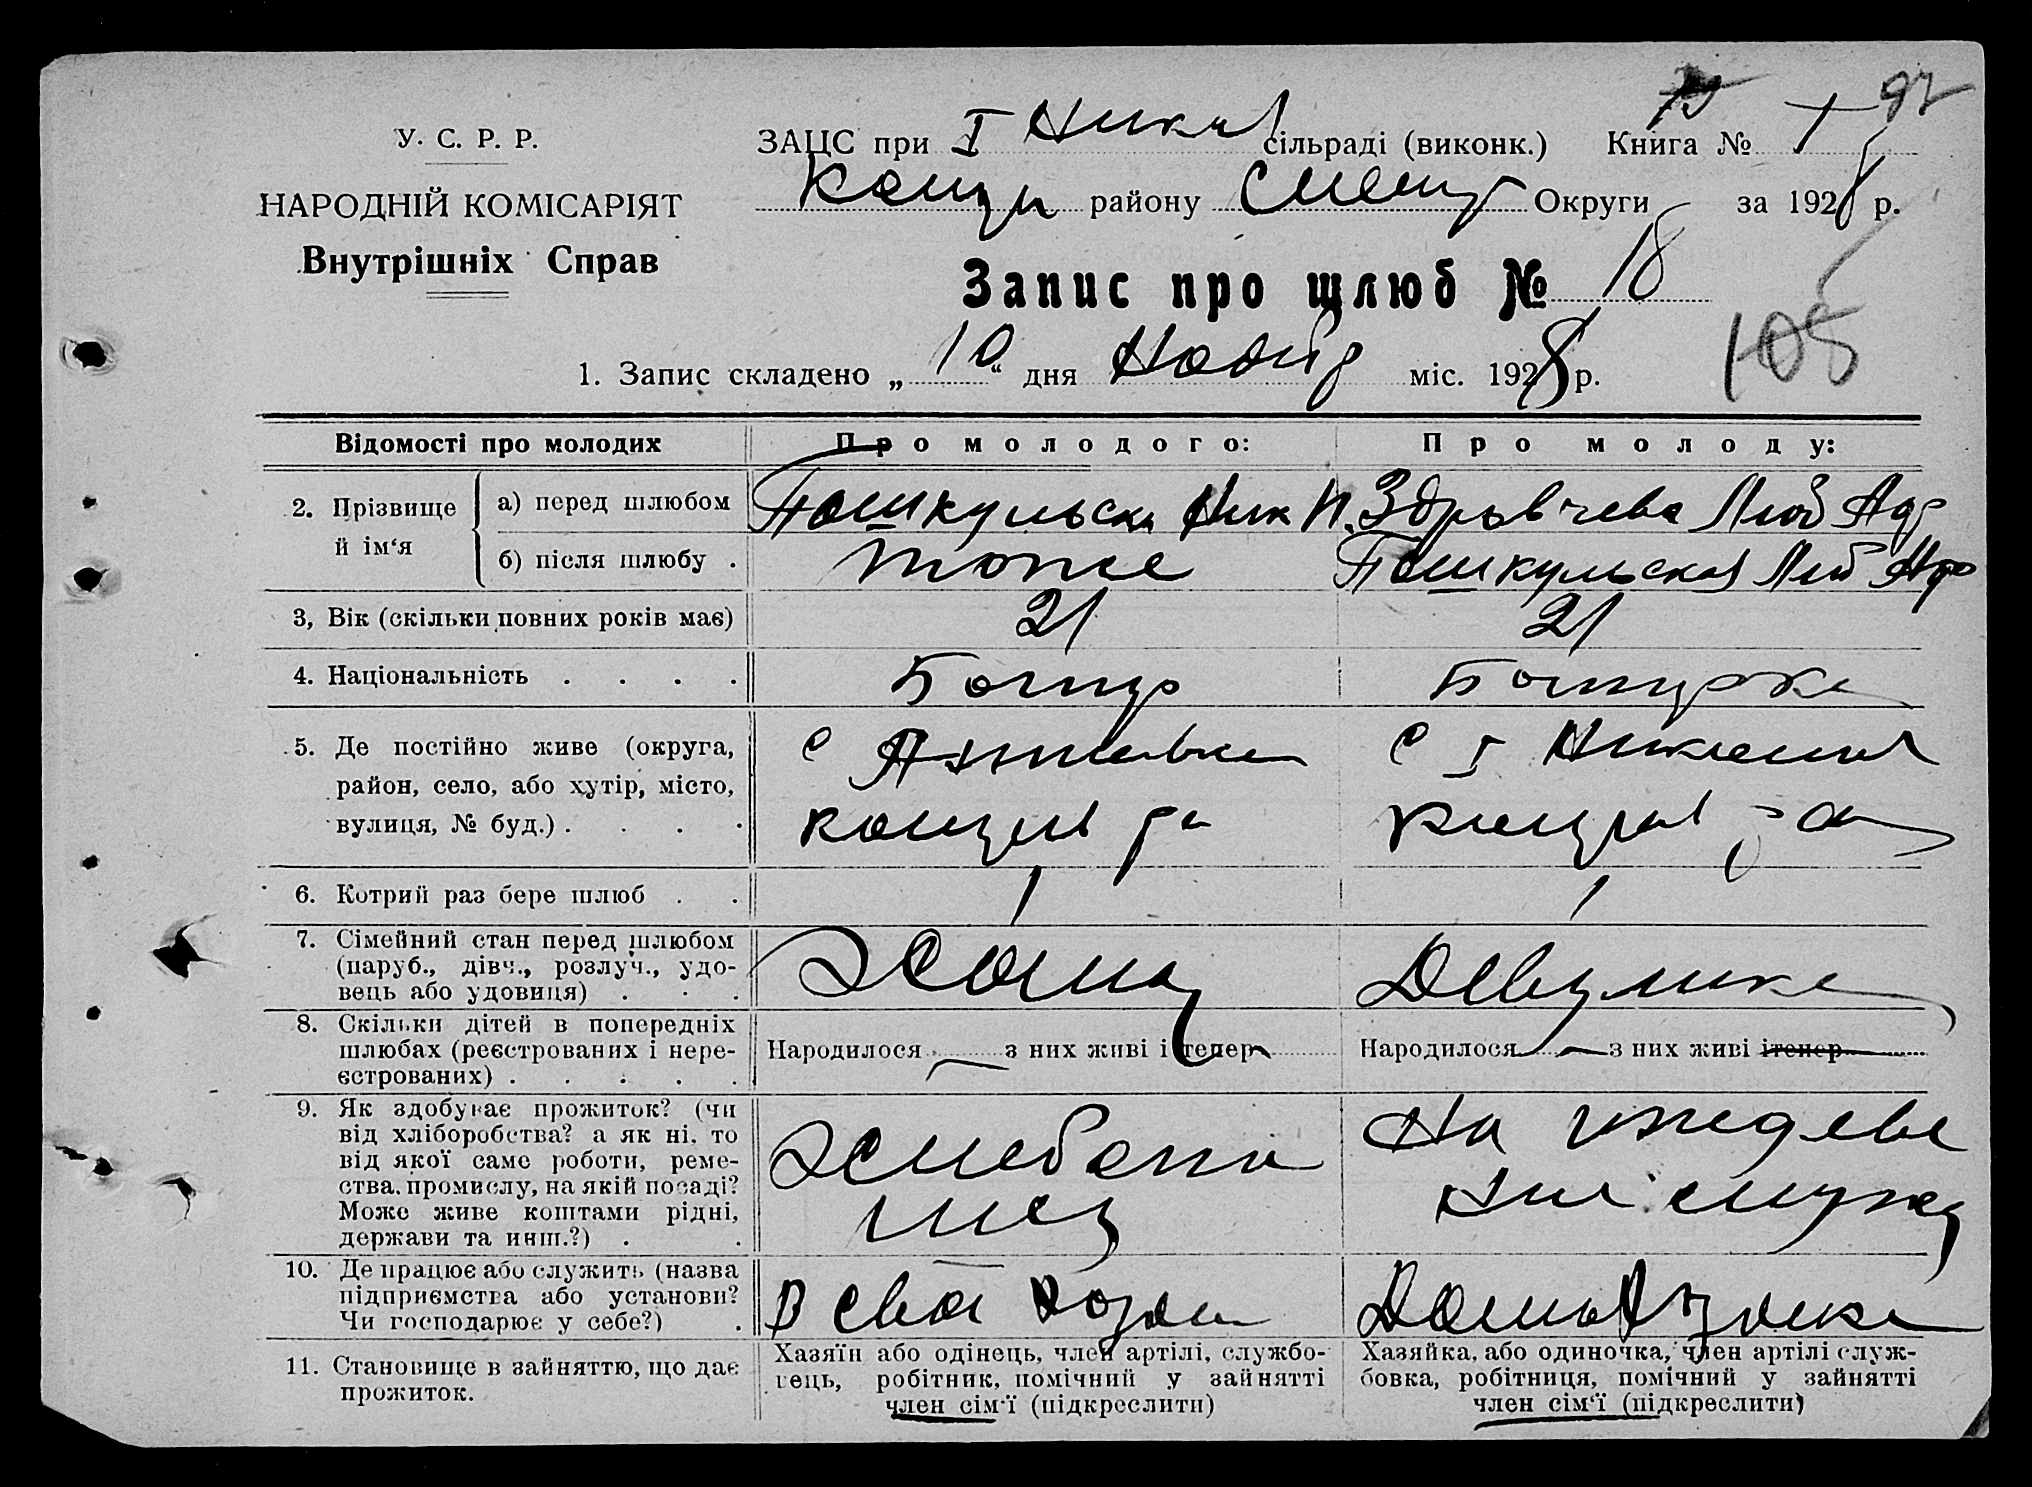 97
У. С. Р. Р.
ЗАЦС при I Никол сільраді (виконк.) Книга № 1
НАРОДНІЙ КОМІСАРІЯТ
району Округи за 1928 р.
Внутрішніх Справ
Запис про шлюб № 18
105
1. Запис складено „10“ дня Ноябр міс. 1928 р.
Відомості про молодих Про молодого: Про молоду:
2. Прізвище й ім‘я
а) перед шлюбом Пошкульска Ник И. Здрывчева Люб Адр
б) після шлюбу . тоже Пошкульская Люб Адр
3, Вік (скільки повних років має) 21 21
4. Національність . . . . Болгар Болгарка
5. Де постійно живе (округа, с с I Николаев
район, село, або хутір, місто,
вулиця, № буд.) . . . . ра р-а
6. Котрий раз бере шлюб . . 1 1
7. Сімейний стан перед шлюбом Холост Девушка
(паруб., дівч., розлуч., удо-
вець або удовиця) . . .
8. Скільки дітей в попередніх
шлюбах (реєстрованих і нере- Народилося — з них живі і тепер Народилося — з них живі і тепер
єстрованих) . . . . .
9. Як здобуває прожиток? (чи На иждеве
від хліборобства? а як ні, то
від якої саме роботи, реме- Хлебопа
ства, промислу, на якій посаді? нии мужа
Може живе коштами рідні, шец
держави та инш.?) . .
10. Де працює або служить (назва
підприємства або установи? В свои хозяи Домохозяйка
Чи господарює у себе?) .
11. Становище в зайняттю, що дає
прожиток.
Хазяїн або одінець, член артілі, службо-
вець, робітник, помічний у зайнятті
член сім‘ї (підкреслити)
Хазяйка, або одиночка, член артілі служ-
бовка, робітниця, помічний у зайнятті
член сім‘ї (підкреслити)